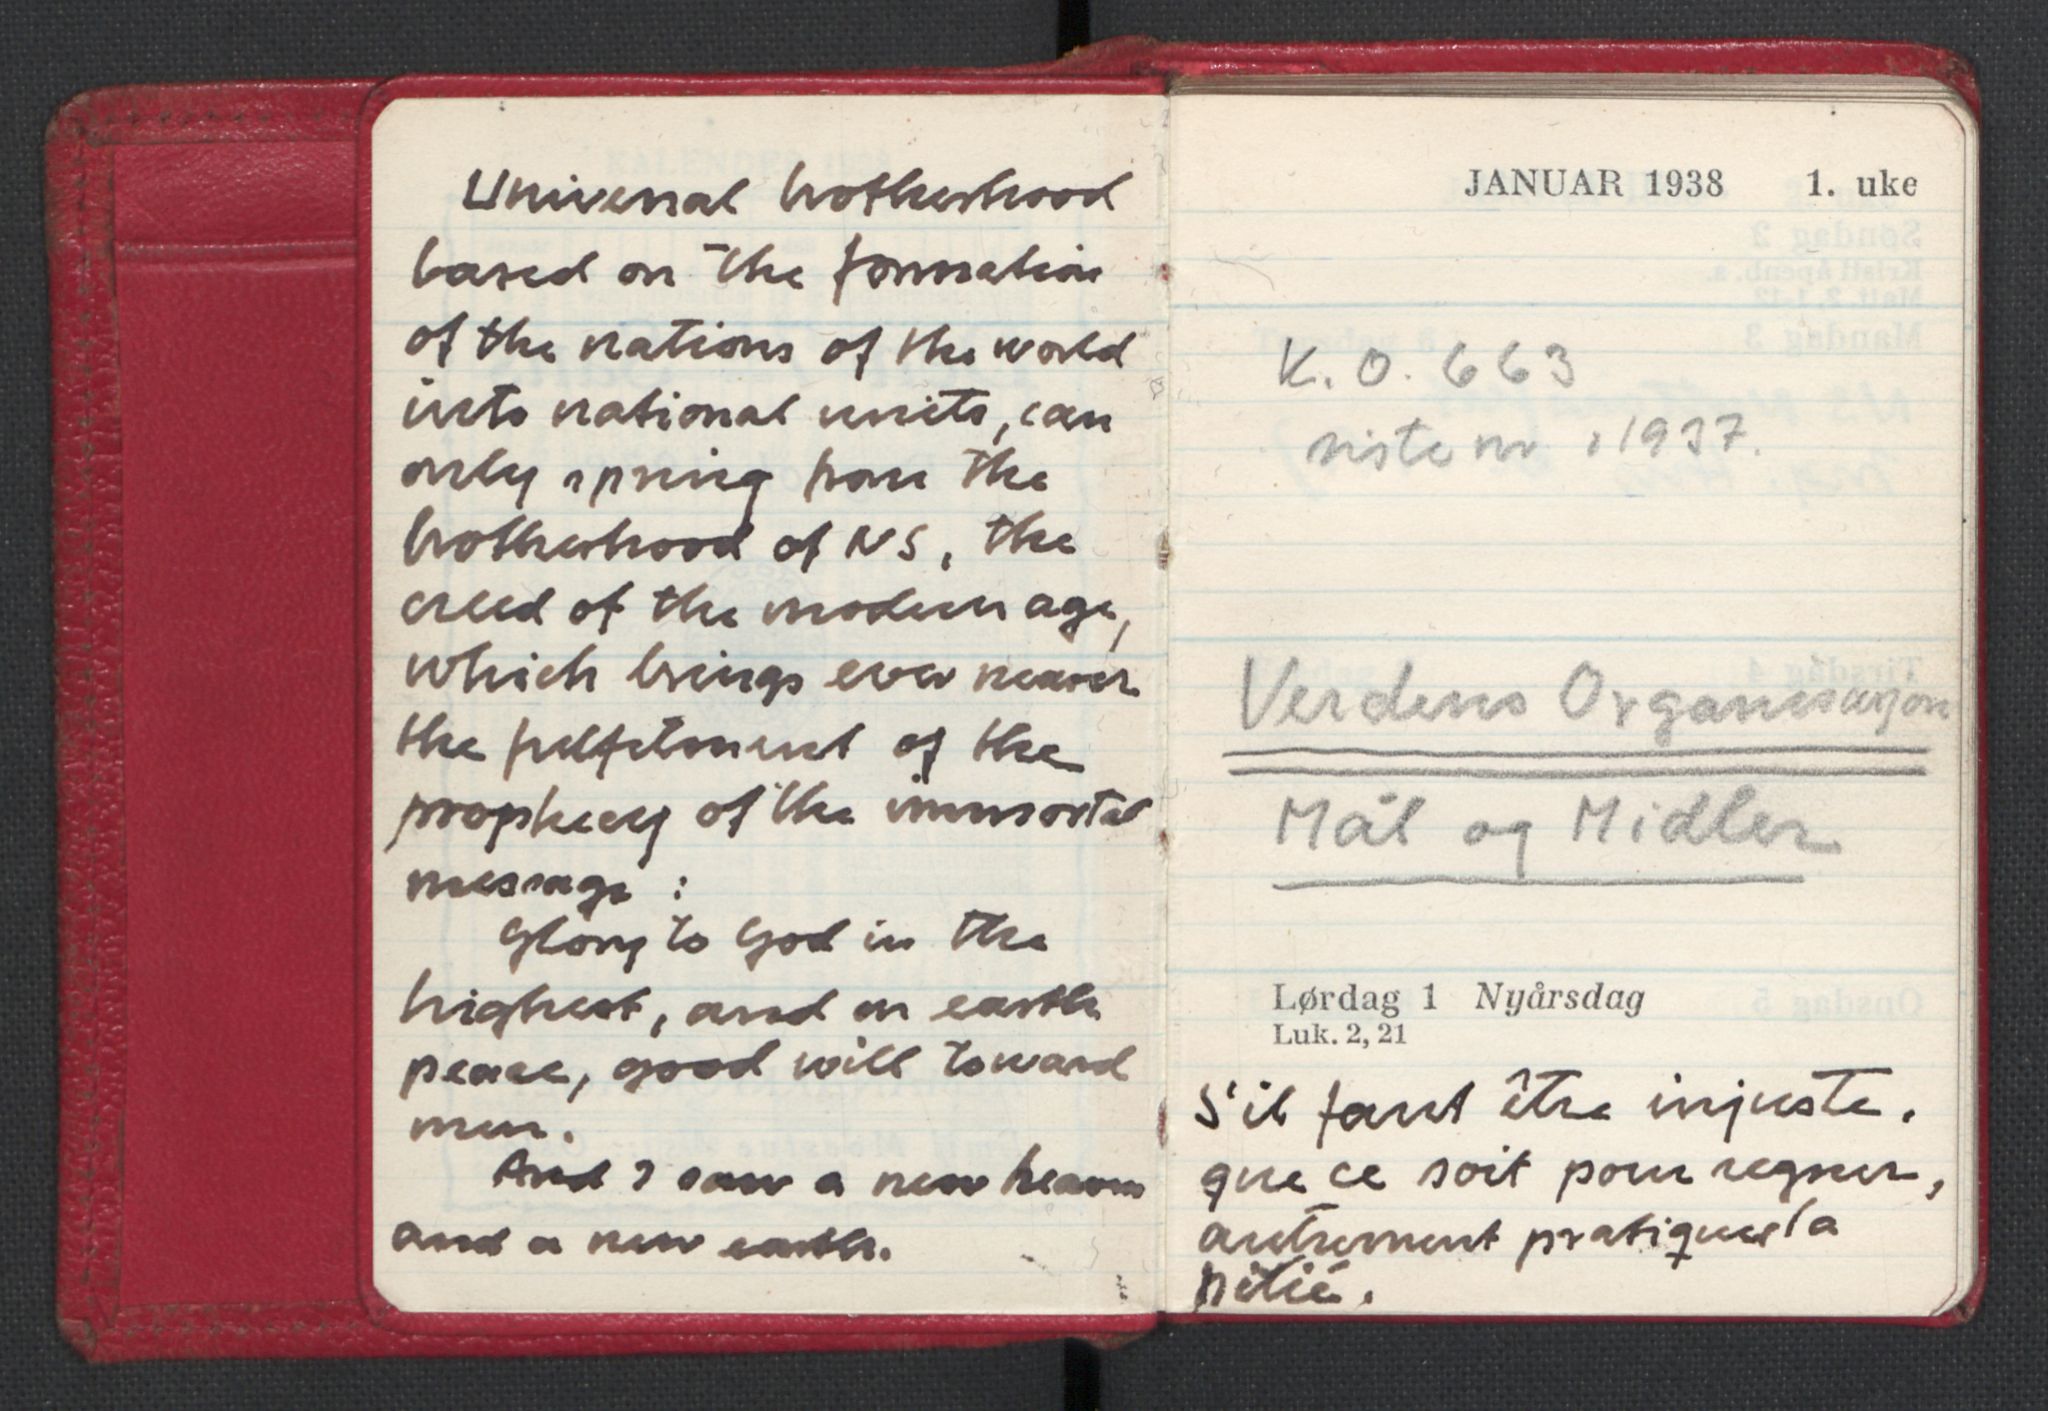 Universal brotherhood
based on the formation
of the nations of the world
into national units, can
only spring from the
brotherhood of NS, the
creed of the modern age,
which brings ever nearer
the fulfilment of the
prophecy of the immortal
message:
Glory to God in the
highest, and on earth
peace, good will toward
men.
And I saw a new heaven
and a new earth.
JANUAR 1938 1. uke
K.O. 663
siste nr i 1937.
Verdens Organisasjon
Mål og Midler
Lørdag 1 Nyårsdag
Luk. 2, 21
S'il faut être injuste.
que ce soit pour regner,
autrement pratiquer la
pitié.